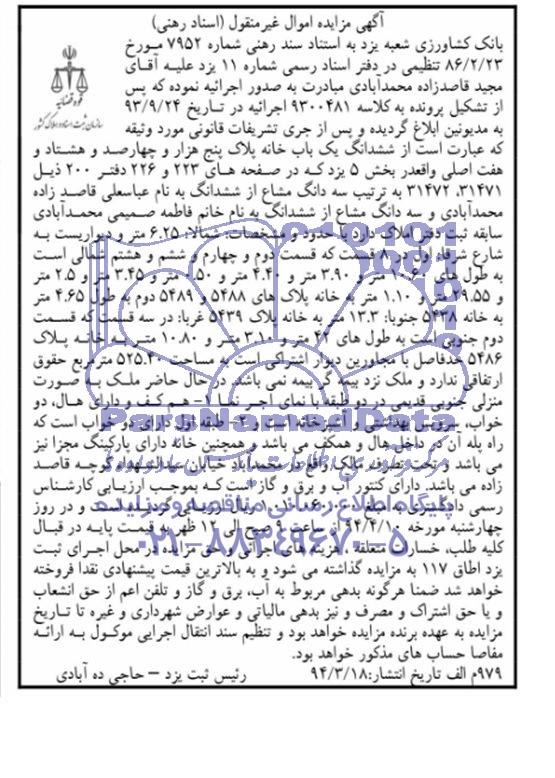 آگهی مزایده اموال غیرمنقول (اسناد رهنی)
بانک کشاورزی شعبه یزد به استناد سند رهنی شماره ۷۹۵۲ مورخ
۸۶/۲/۲۳ تنظیمی در دفتر اسناد رسمی شماره ۱۱ یزد علیه آقای
مجید قاصدزاده محمدآبادی مبادرت به صدور اجرائیه نموده که پس
از تشکیل پرونده به کلاسه ۹۳۰۰۴۸۱ اجرائیه در تاریخ ۹۳/۹/۲۴
به مدیونین ابلاغ گردیده و پس از جری تشریفات قانونی مورد وثیقه
قوه قضائیه
سازمان ثبت اسناد و املاک کشور
که عبارت است از ششدانگ یک باب خانه پلاک پنج هزار و چهارصد و هشتاد و
هفت اصلی واقعدر بخش ۵ یزد که در صفحه های ۲۲۳ و ۲۲۶ دفتر ۲۰۰ ذیل
۳۱۴۷۱، ۳۱۴۷۲ به ترتیب سه دانگ مشاع از ششدانگ به نام عباسعلی قاصد زاده
محمدآبادی و سه دانگ مشاع از ششدانگ به نام خانم فاطمه صمیمی محمدآبادی
سابقه ثبت دفتر املاک دارد با حدود و مشخصات: شمالا: ۶.۲۵ متر و دیواریست به
شارع شرقا: اول در ۸ قسمت که قسمت دوم و چهارم و ششم و هشتم شمالی است
به طول های ۱۰.۶۰ متر و ۳.۹۰ متر و ۴.۴۰ متر و ۰.۵۰ متر و ۳.۴۵ متر و ۲.۵ متر
و ۲۹.۵۵ متر و ۱.۱۰ متر به خانه پلاک های ۵۴۸۸ و ۵۴۸۹ دوم به طول ۴.۶۵ متر
به خانه ۵۴۳۸ جنوبا: ۱۳.۳ متر به خانه پلاک ۵۴۳۹ غربا: در سه قسمت که قسمت
دوم جنوبی است به طول های ۴۲ متر و ۳.۱۰ متر و ۱۰.۸۰ متر به خانه پلاک
۵۴۸۶ حدفاصل با مجاورین دیوار اشتراکی است به مساحت ۵۲۵.۴۰ مترمربع حقوق
ارتفاقی ندارد و ملک نزد بیمه گر بیمه نمی باشد. در حال حاضر ملک به صورت
منزلی جنوبی قدیمی در دو طبقه با نمای آجر نما ۱- هم کف و دارای هال، دو
خواب، سرویس بهداشتی و آشپزخانه است و ۲- طبقه اول دارای دو خواب است که
راه پله آن در داخل هال و همکف می باشد و همچنین خانه دارای پارکینگ مجزا نیز
می باشد و تحت تصرف مالک واقع در محمدآباد خیابان کوچه قاصد
زاده می باشد. دارای کنتور آب و برق و گاز است که بموجب ارزیابی کارشناس
رسمی دادگستری به مبلغ ریال ارزیابی گردیده است و در روز
چهارشنبه مورخه ۹۴/۴/۱۰ از ساعت ۹ صبح الی ۱۲ ظهر به قیمت پایه در قبال
کلیه طلب، خسارت متعلقه، هزینه های اجرائی و حق مزایده در محل اجرای ثبت
یزد اطاق ۱۱۷ به مزایده گذاشته می شود و به بالاترین قیمت پیشنهادی نقدا فروخته
خواهد شد ضمنا هرگونه بدهی مربوط به آب، برق و گاز و تلفن اعم از حق انشعاب
و یا حق اشتراک و مصرف و نیز بدهی مالیاتی و عوارض شهرداری و غیره تا تاریخ
مزایده به عهده برنده مزایده خواهد بود و تنظیم سند انتقال اجرایی موکول به ارائه
مفاصا حساب های مذکور خواهد بود.
۹۷۹م الف تاریخ انتشار:۹۴/۳/۱۸ رئیس ثبت یزد – حاجی ده آبادی
پایگاه اطلاع رسانی مناقصه و مزایده
۰۲۱-۸۸۳۴۹۶۷۰-۵